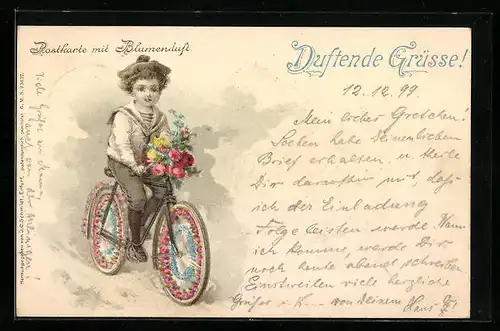 Postkarte mit Blumenduft.
Duftende Grüsse!
12.12.99.
Mein liebes Gretchen!
Soeben habe Deinen lieben
Brief erhalten, u. theile
Dir daraufhin mit, daß
ich der Einladung
Folge leisten werde. Wann
ich komme, werde Dir
noch heute abend schreiben
Einstweilen viele herzliche
Grüße von Deinem
Hans
Viele Grüße von Mama